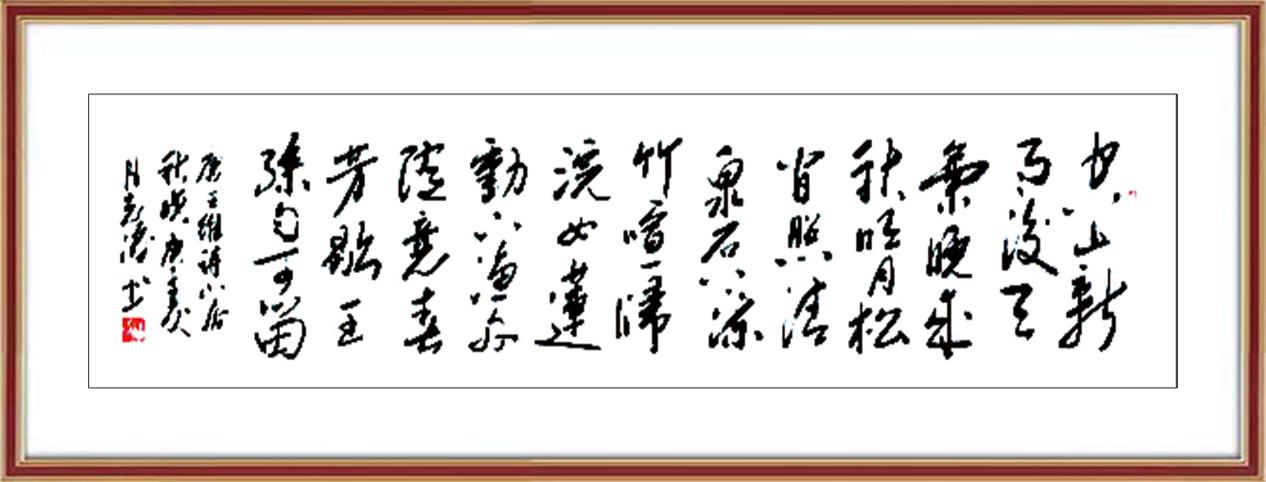 空山新
雨後天
氣晚來
秋明月松
間照清
泉石上流
竹喧歸
浣女蓮
動下漁舟
随意春
芳歇王
孫自可留
唐王維詩山居
秋暝庚
月